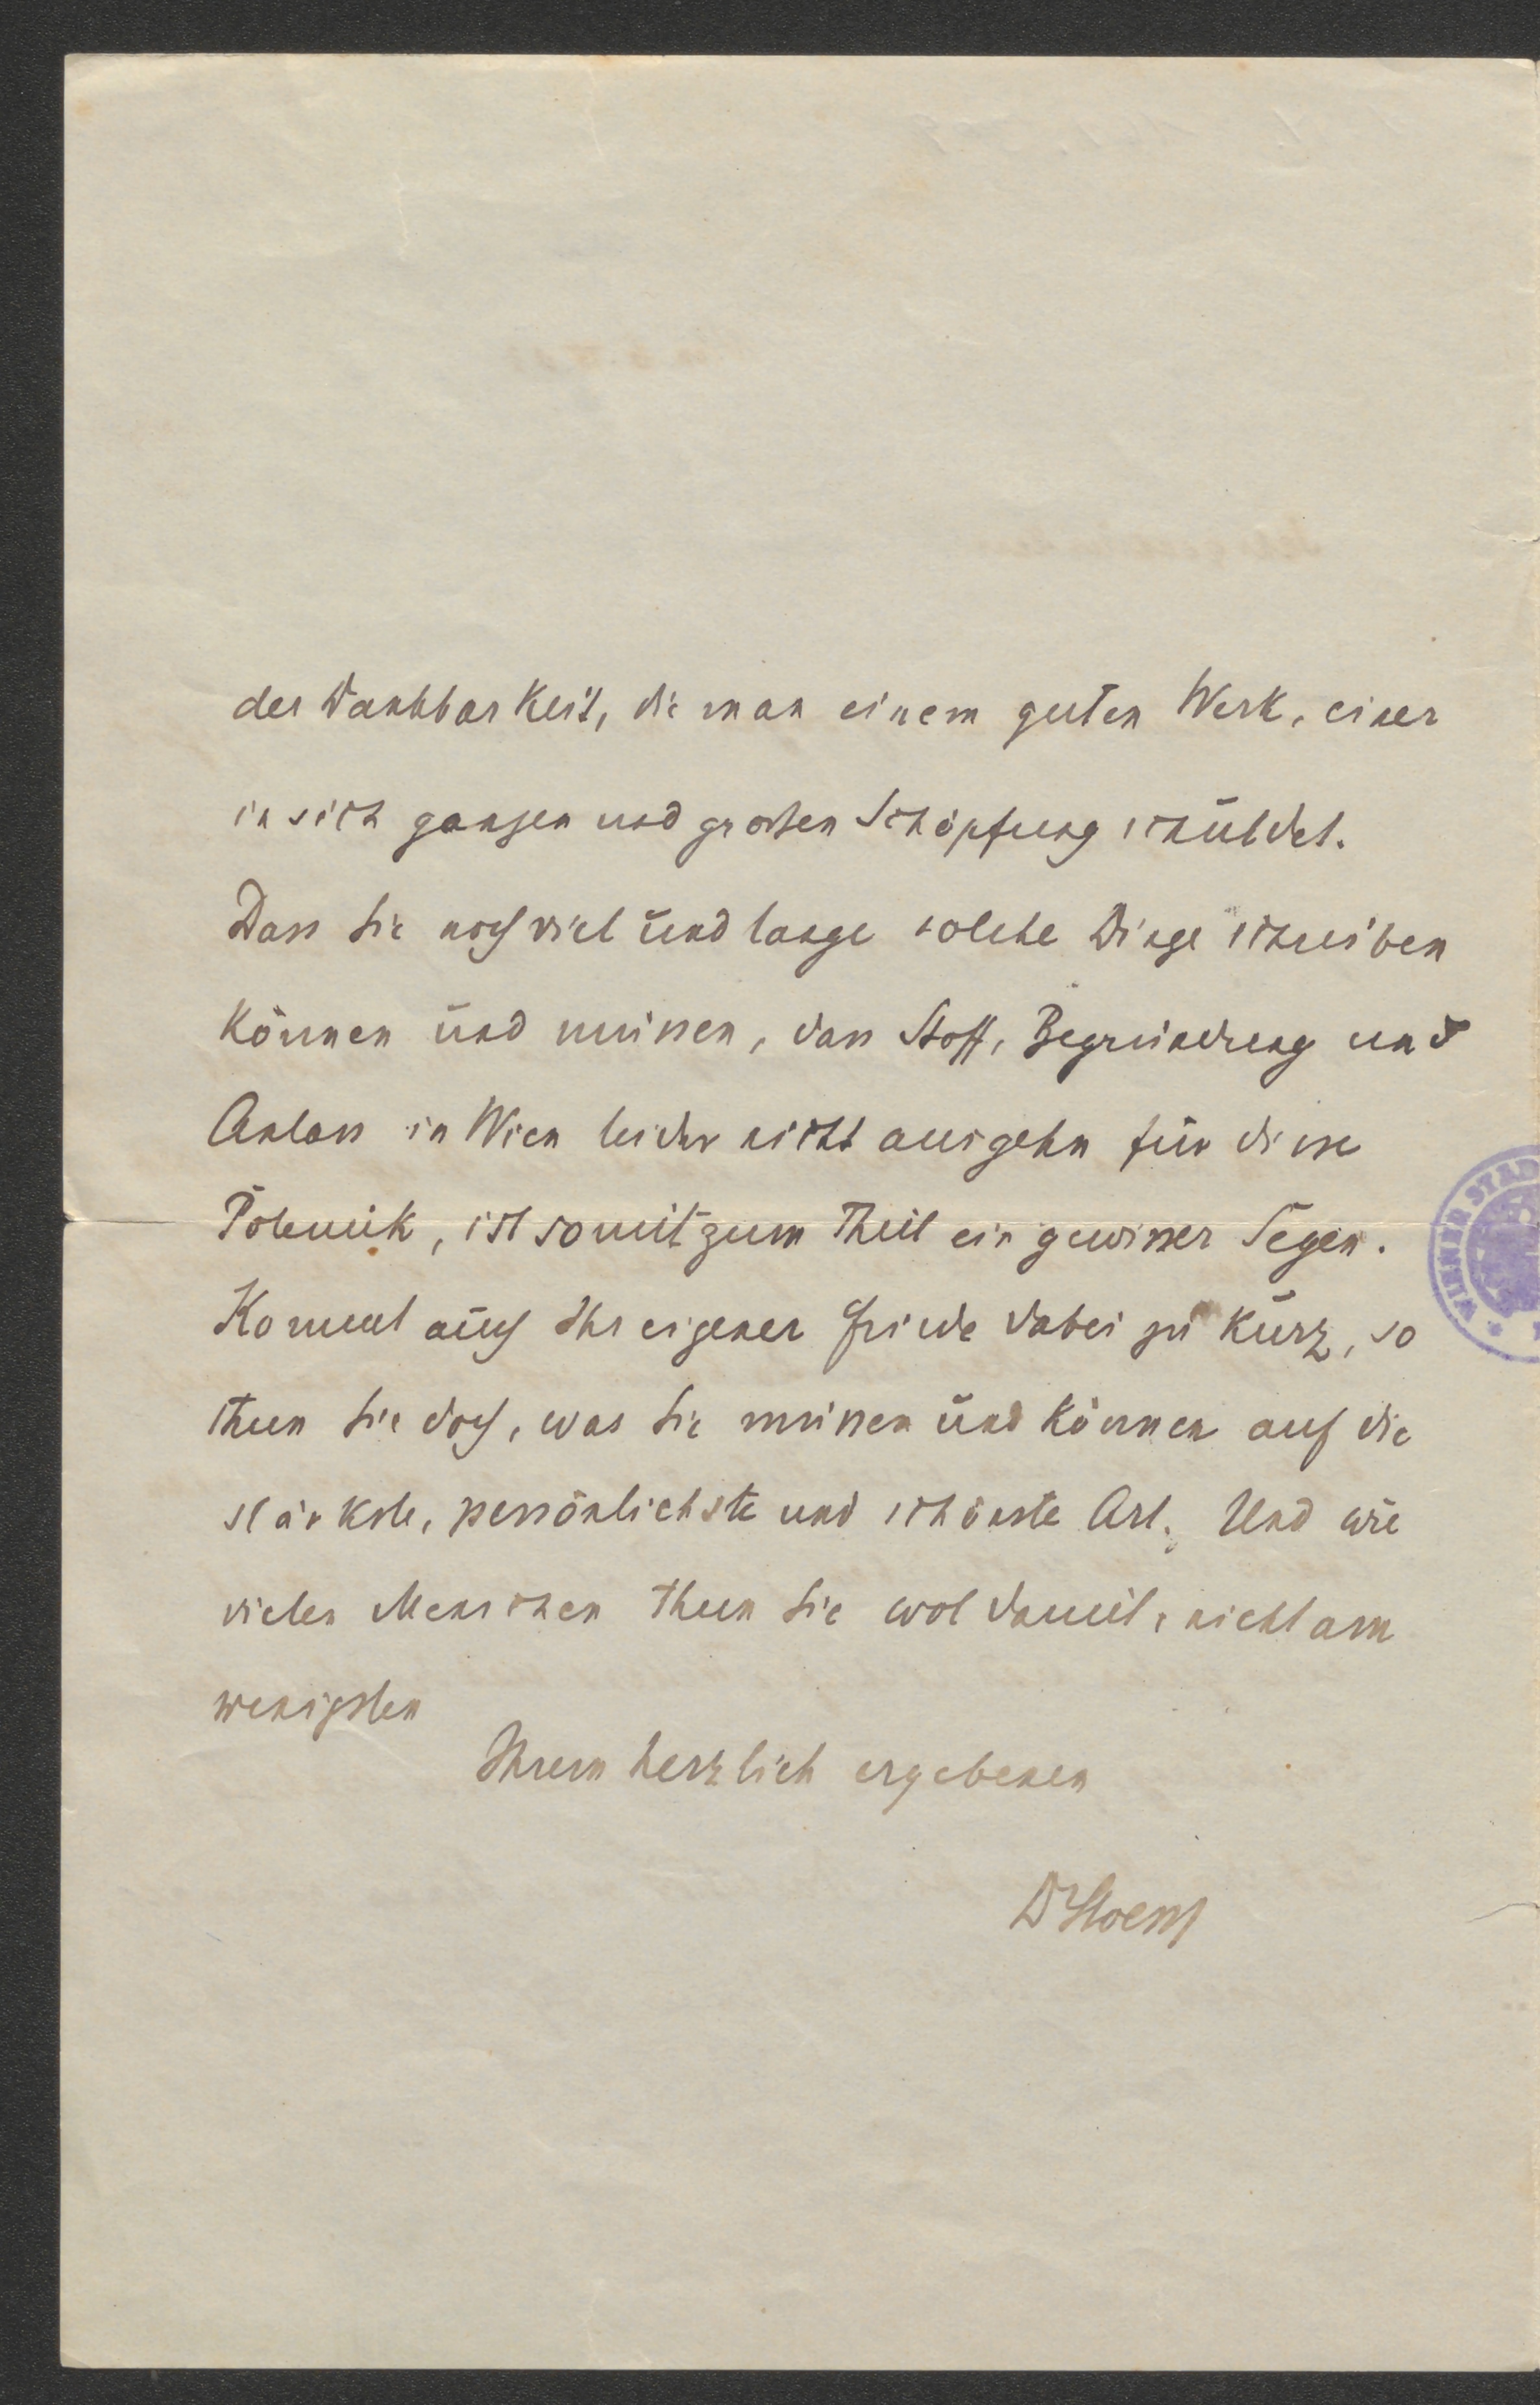 der Dankbarkeit, die man einem guten Werk, einer
in sich ganzen und großen Schöpfung schuldet.
Dass Sie noch viel und lange solche Dinge schreiben
können und müssen, dass Stoff, Begründung und
Anlass in Wien leider nicht ausgehn für diese
Polemik, ist somit zum Theil ein gewisser Segen.
Kommt auch Ihr eigener Friede dabei zu kurz, so
thun Sie doch, was Sie müssen und können auf die
stärkste, persönlichste und schönste Art. Und wie
vielen Menschen thun Sie wol damit, nicht am
wenigsten
Ihrem herzlich ergebenen
DrStoessl
WIENER STÄD